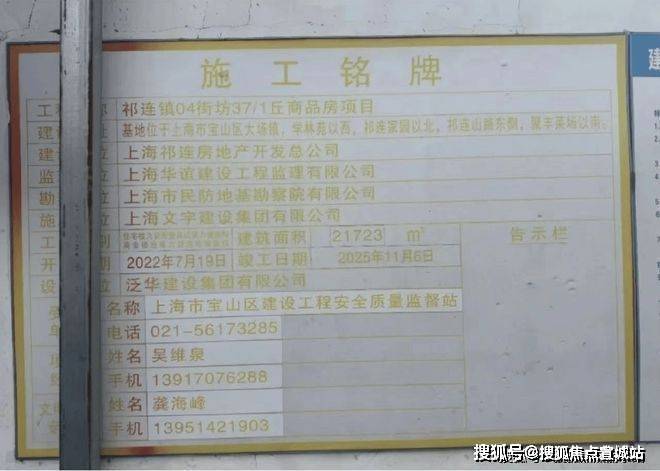 施工铭牌
工 称 祁连镇04街坊37/1丘商品房项目
建 址 基地位于上海市宝山区大场镇，学林苑以西，祁连家园以北，祁连山路东侧，聚丰菜场以南。
建 位 上海祁连房地产开发总公司
监 位 上海华谊建设工程监理有限公司
勘 位 上海市民防地基勘察院有限公司
施 位 上海文宇建设集团有限公司
工 别 建筑面积 21723 m²
开 期 2022年7月19日 竣工日期 2025年11月6日
设 位 泛华建设集团有限公司
名称 上海市宝山区建设工程安全质量监督站
单 电话 021-56173285
项 姓名 吴维泉
经 手机 13917076288
文 姓名 龚海峰
手机 13951421903
告示栏
建
搜狐号@搜狐焦点宣城站